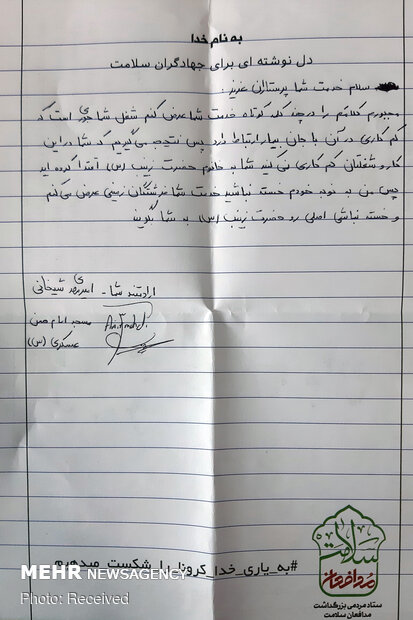 به نام خدا
دل نوشته ای برای جهادگران سلامت
سلام خدمت شما پرستاران عزیز.
مجبورم کلامم را در چند کلمه کوتاه خدمت شما عرض کنم شغل شما جوری است که
کم کاری در آن با جان بیمار ارتباط دارد پس نتیجه می گیریم که شما در این
کار و شغلتان کم کاری نمی کنید شما به خانوم حضرت زینب (س) اقتدا کرده اید
پس من به نوبه خودم خسته نباشید خدمت شما فرشتگان زمینی عرض می کنم
و خسته نباشی اصلی رو حضرت زینب (س) به شما بگویند
ارادتمند شما - امیرمهدی شیخانی
مسجد امام حسن
عسکری (س)
سلامت
مدافعان
ستاد مردمی بزرگداشت
مدافعان سلامت
#به_یاری_خدا_کرونا_را_شکست_میدهیم
MEHR NEWSAGENCY
Photo: Received